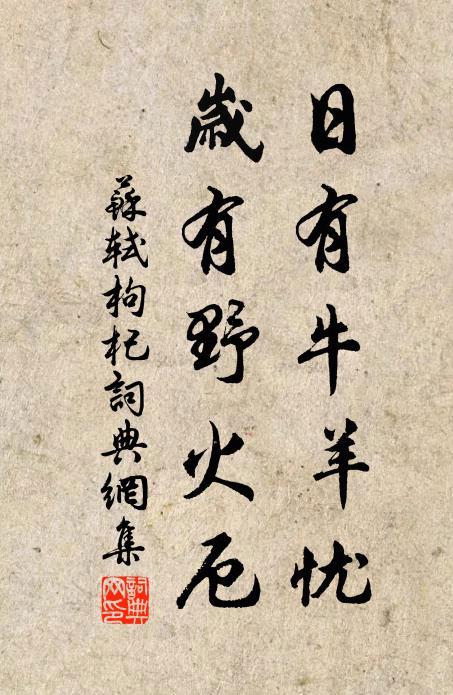 日有牛羊忧
歲有野火厄
蘇軾枸杞詞典網集
詞典網印